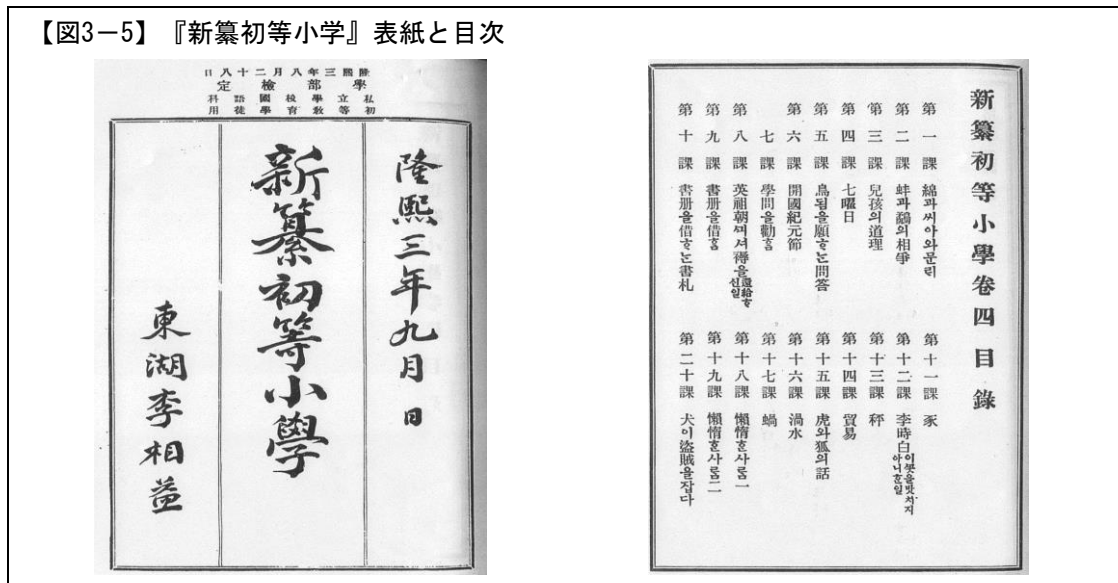 【図3－5】『新纂初等小学』表紙と目次
隆熙三年八月二十八日
學部檢定
私立學校國語科
初等敎育學徒用
隆熙三年九月 日
新纂初等小學
東湖李相益
新纂初等小學卷四目錄
第一課 綿과씨아와문리
第二課 蚌과鷸의相爭
第三課 兒孩의道理
第四課 七曜日
第五課 鳥됨을願ᄒᆞᄂᆞᆫ問答
第六課 開國紀元節
七課 學問을勸ᄒᆞᆷ
第八課 英祖朝ᄭᅦ셔得을還給ᄒᆞ신일
第九課 書册을借ᄒᆞᆷ
第十課 書册을借ᄒᆞᄂᆞᆫ書札
第十一課 豕
第十二課 李時白이쏫을밧치지아니ᄒᆞᆫ일
第十三課 秤
第十四課 貿易
第十五課 虎와狐의話
第十六課 渦水
第十七課 蝸
第十八課 懶惰ᄒᆞᆫ사ᄅᆞᆷ一
第十九課 懶惰ᄒᆞᆫ사ᄅᆞᆷ二
第二十課 犬이盜賊을잡다